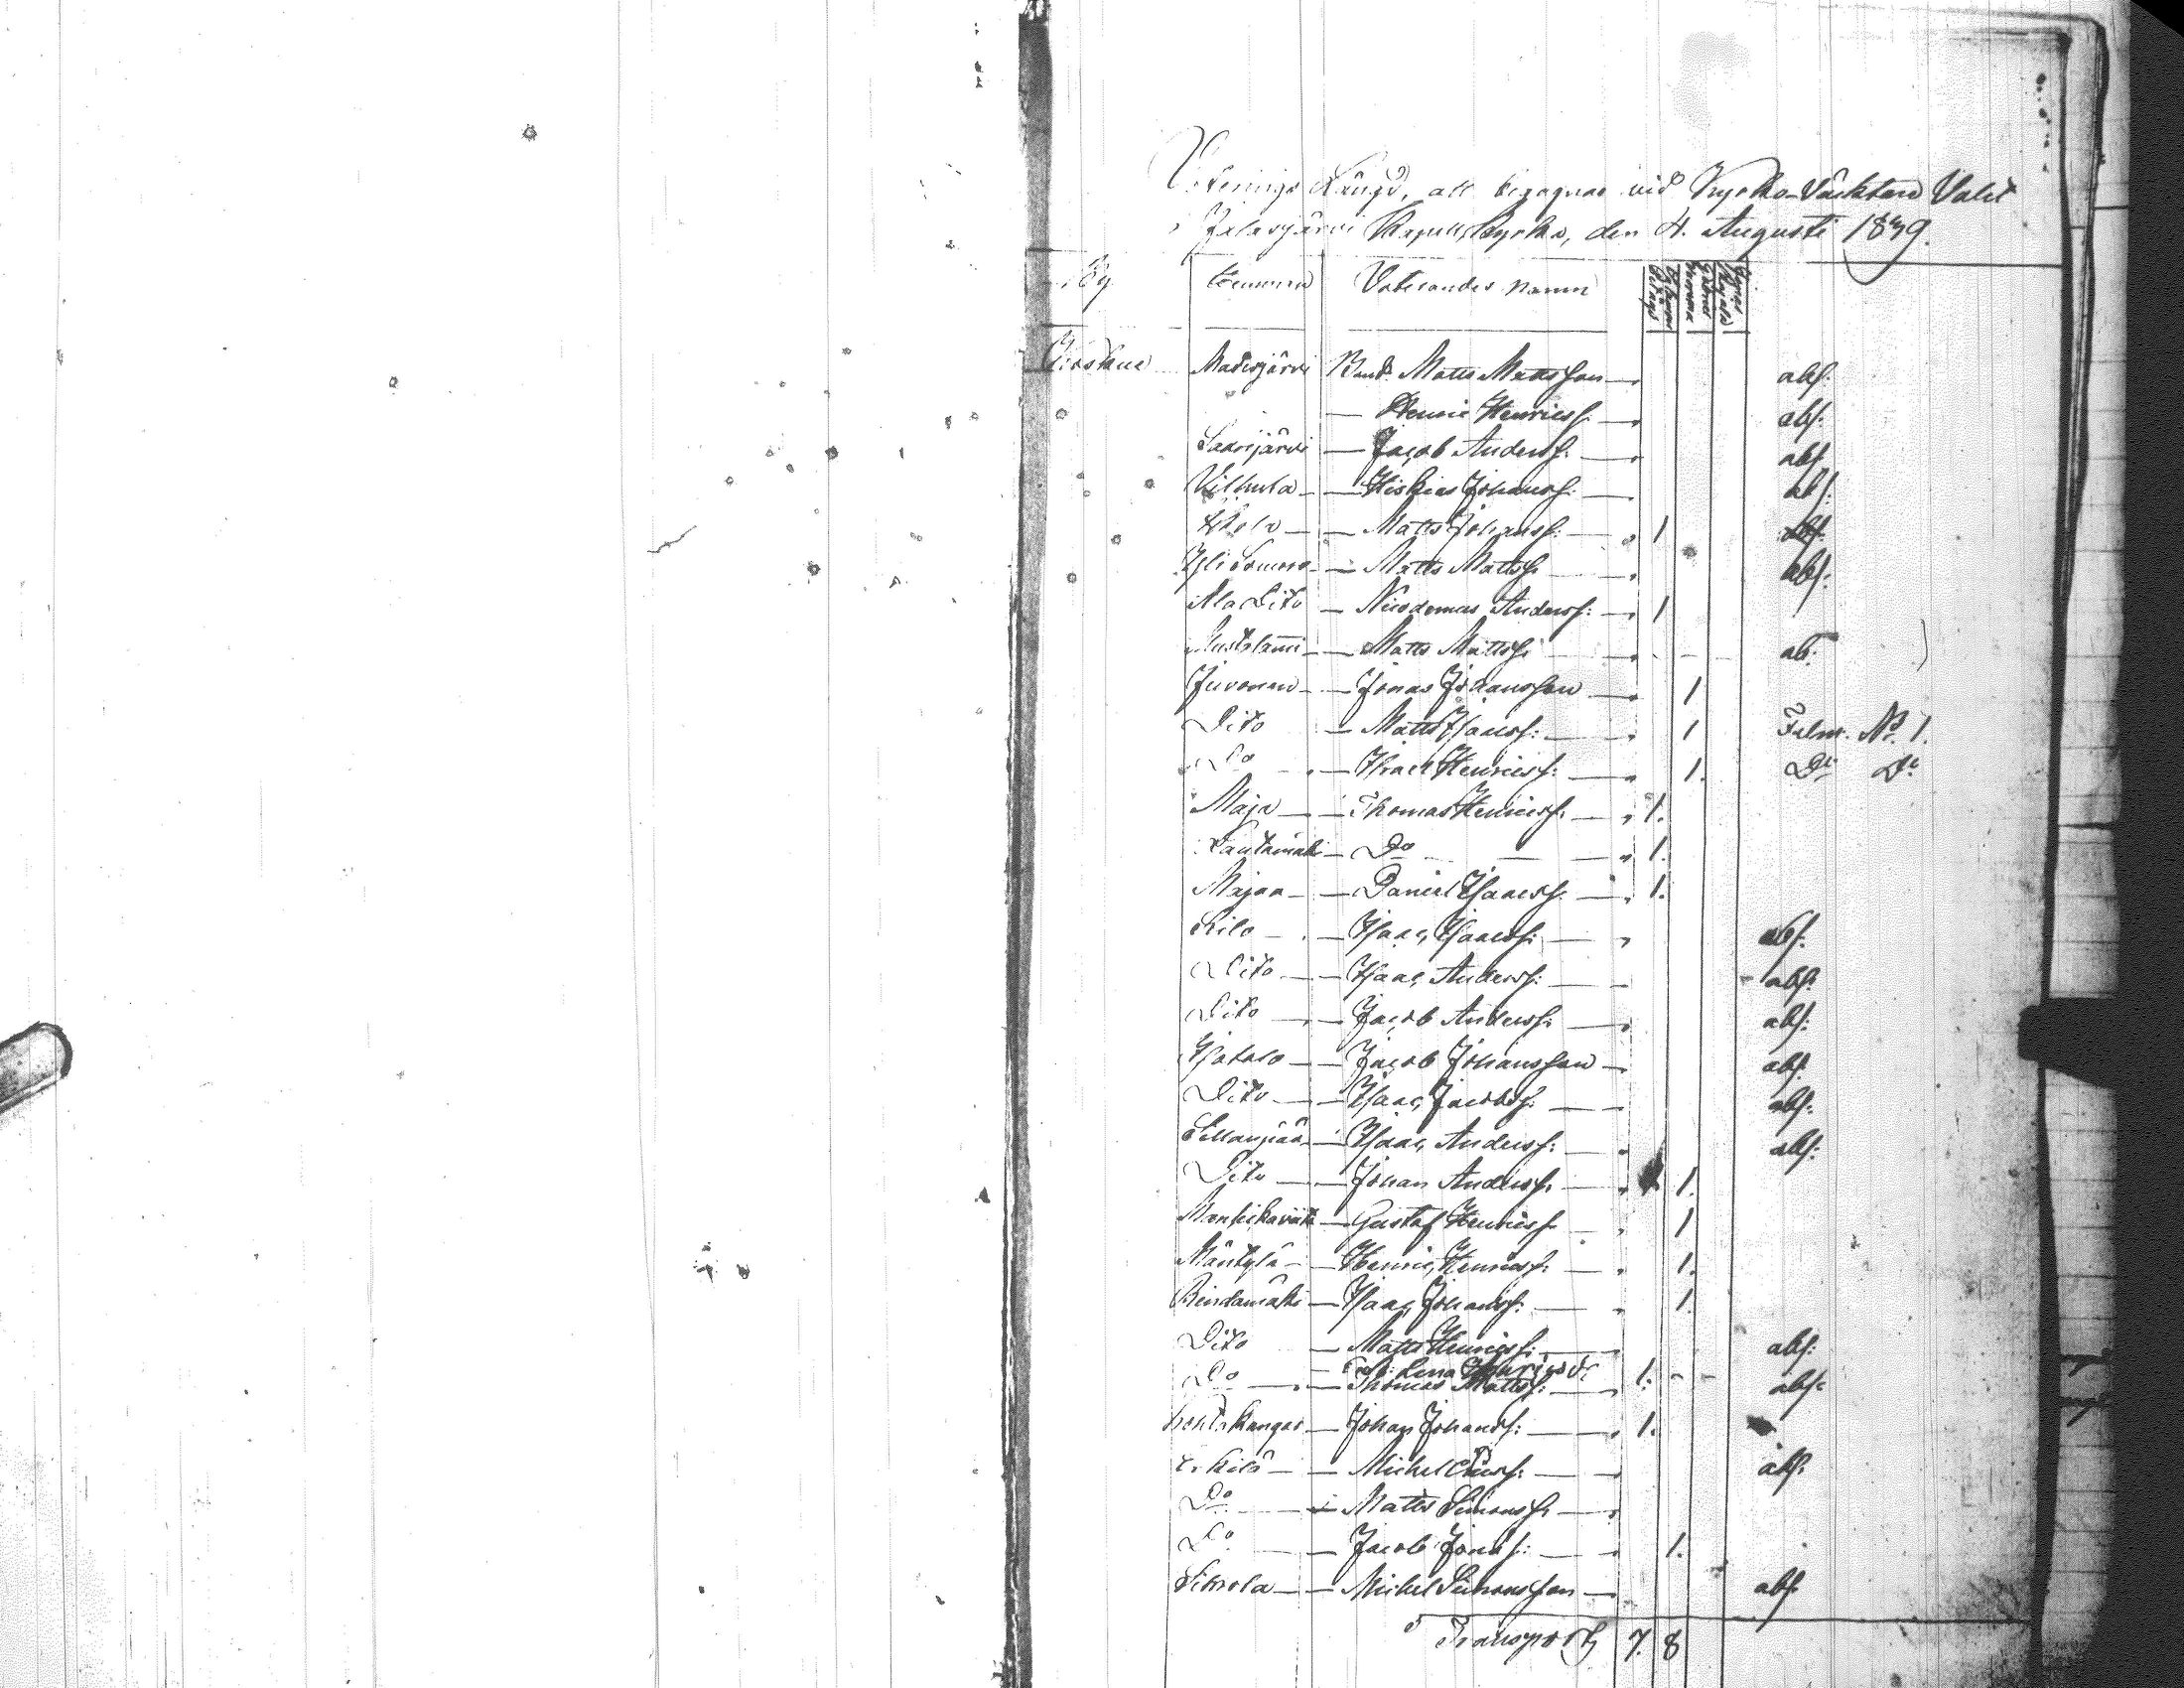 Voterings Längd, att begagnas vid Kyrko-Väcktare Valet
i Jalasjärvi Kapells Kyrka, den 4. Augusti 1839.
By Hemman Voterandes namn
Koskue Madesjärvi Bond. Matts Mattsson abs.
— Henric Henricss: abs:
Saarijärvi — Jacob Anderss: abs
Wilhula — Hiskias Johanss: abs:
— Matts Johanss: 1 abs.
Yli Lomoro — Matts Mattss abs:
Ala Dito — Nicodemus Anderss: 1
Mustalami — Matts Mattss: ab:
Juvonen — Jonas Johansson 1
Dito — Matts Isacss: 1 Fulm. No. 1.
Do — Israel Henricss: 1. Do Do
Maja — Thomas Henricss: 1.
Rautamäki — Do 1.
Majaa — Daniel Isaacss. 1.
Kilo — Isaac Isaacss: abs:
Dito — Isaac Anderss: abs:
Dito — Jacob Anderss: abs:
— Jacob Johansson abs
Dito — Isaac Jacobss: abs:
Sillanpää — Isaac Anderss: abs:
Dito — Johan Anderss. 1.
— Gustaf Henricss 1
Mäntylä — Henric Henricss: 1.
Rindamäki — Isaac Johanss: 1.
Dito — Matts Henricss: abs:
— Lena Henricsdr 1.
Do — Thomas Mattss: abs:
— Johan Johanss: 1.
— Michel abs:
Do — Matts Simonss
Do — Jacob Jonss: 1.
Simola — Michel Simonsson abs
Transport 7. 8